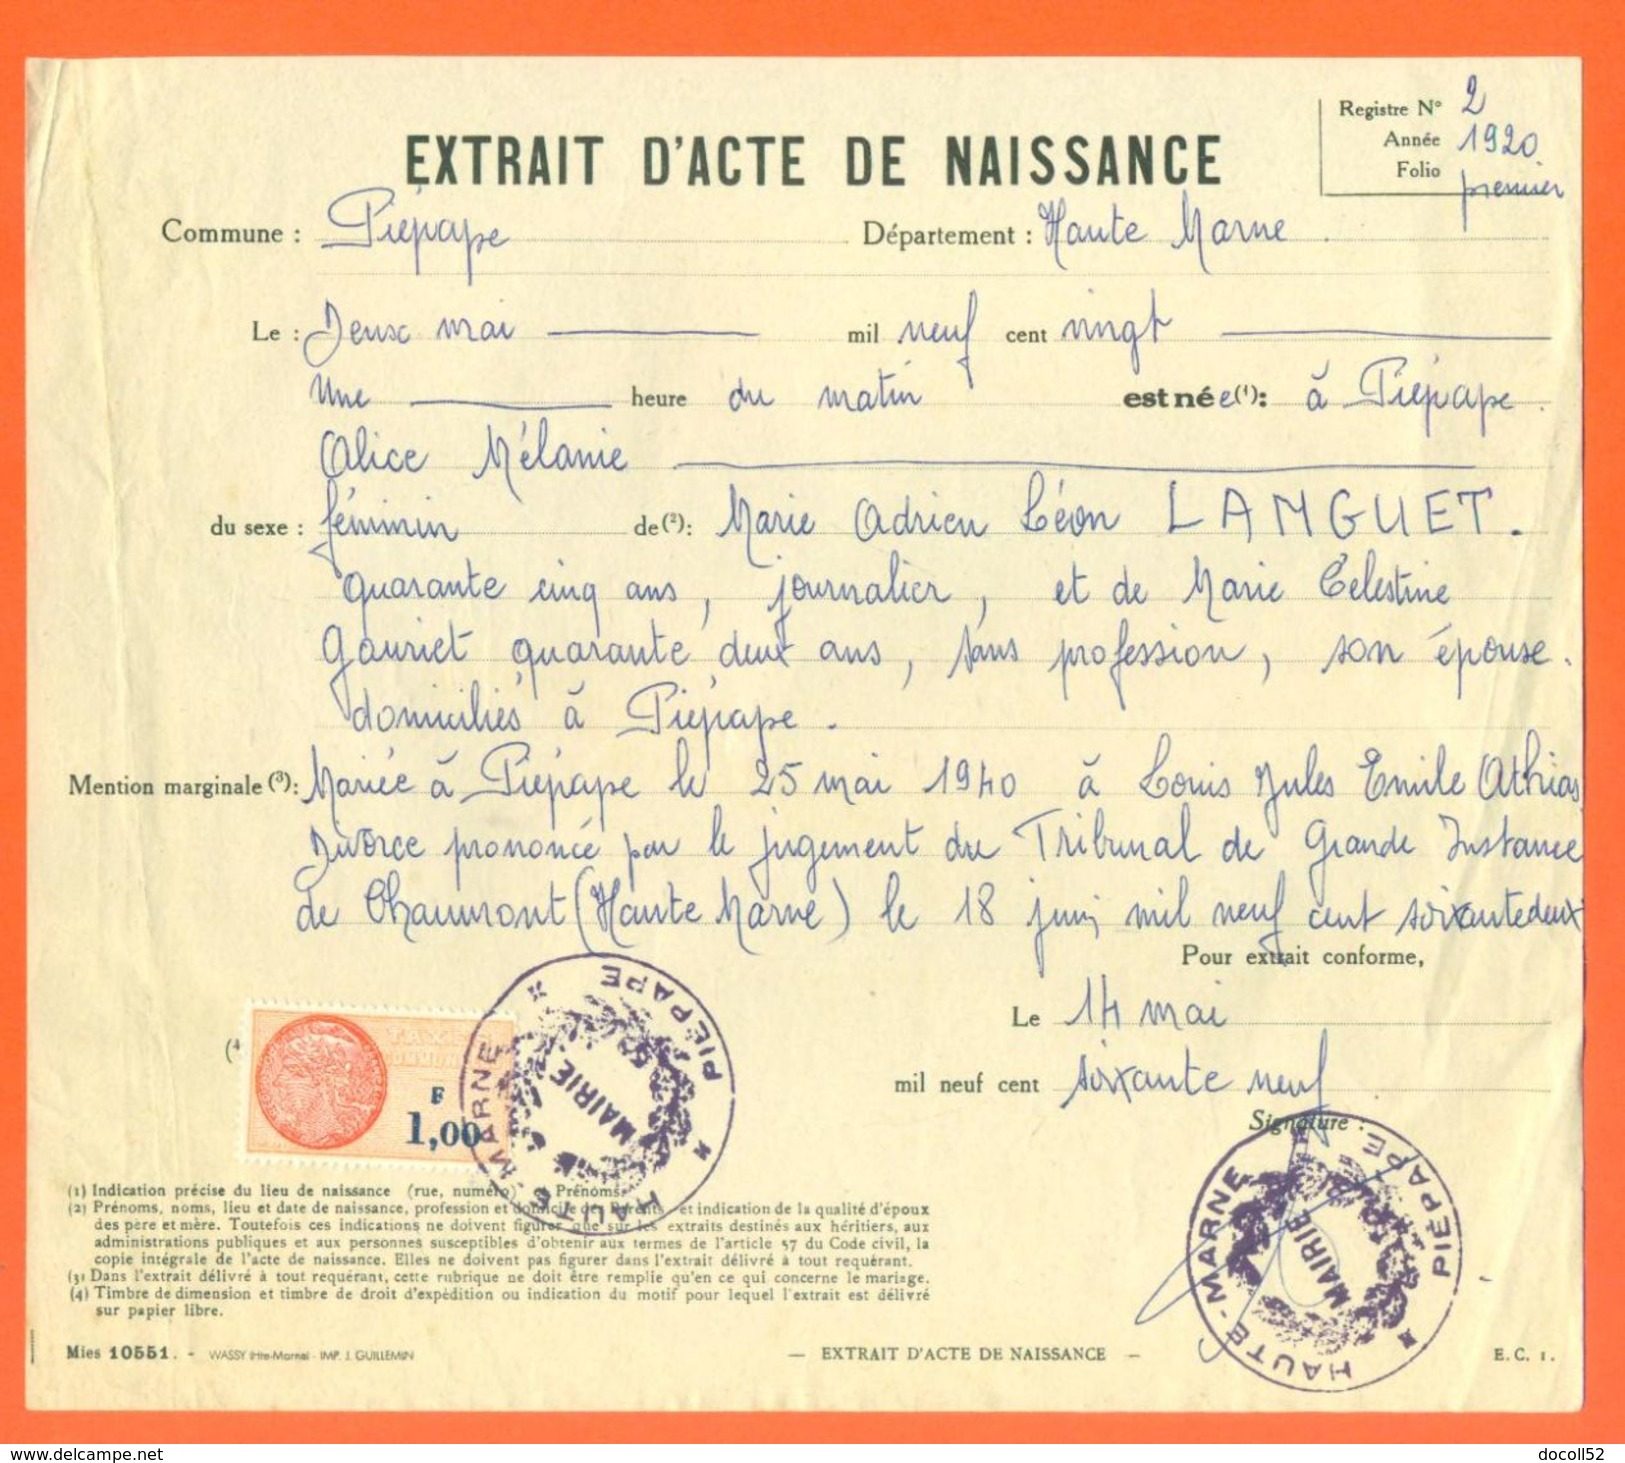 Registre N° 2
Année 1920
Folio premier
EXTRAIT D'ACTE DE NAISSANCE
Commune : Piépape Département : Haute Marne
Le : Deux mai mil neuf cent vingt
Une heure du matin est née (1) : à Piépape
Alice Mélanie
du sexe : féminin de (2) : Marie Adrien Léon LANGUET.
quarante cinq ans, journalier, et de Marie Celestine
Gauriet quarante deux ans, sans profession, son épouse.
domiciliés à Piépape.
Mention marginale (3) : Mariée à Piépape le 25 mai 1940 à Louis Jules Emile Athias
Divorce prononcé par le jugement du Tribunal de Grande Instance
de Chaumont (Haute Marne) le 18 juin mil neuf cent soixante deux
Pour extrait conforme,
Le 14 mai
mil neuf cent soixante neuf
Signature :
(4
TAXE
COMMUN
F
1,00
HAUTE MARNE * PIÉPAPE *
MAIRIE
HAUTE-MARNE * PIÉPAPE
MAIRIE
(1) Indication précise du lieu de naissance (rue, numéro) et Prénoms.
(2) Prénoms, noms, lieu et date de naissance, profession et domicile des Parents et indication de la qualité d'époux
des pere et mère. Toutefois ces indications ne doivent figurer que sur les extraits destinés aux héritiers, aux
administrations publiques et aux personnes susceptibles d'obtenir aux termes de l'article 57 du Code civil, la
copie intégrale de l'acte de naissance. Elles ne doivent pas figurer dans l'extrait délivré à tout requérant.
(3) Dans l'extrait délivré à tout requérant, cette rubrique ne doit être remplie qu'en ce qui concerne le mariage.
(4) Timbre de dimension et timbre de droit d'expédition ou indication du motif pour lequel l'extrait est délivré
sur papier libre.
Mies 10551. - WASSY (Hte-Marne) - IMP. J. GUILLEMIN — EXTRAIT D'ACTE DE NAISSANCE — E. C. 1.
www.delcampe.net docoll52